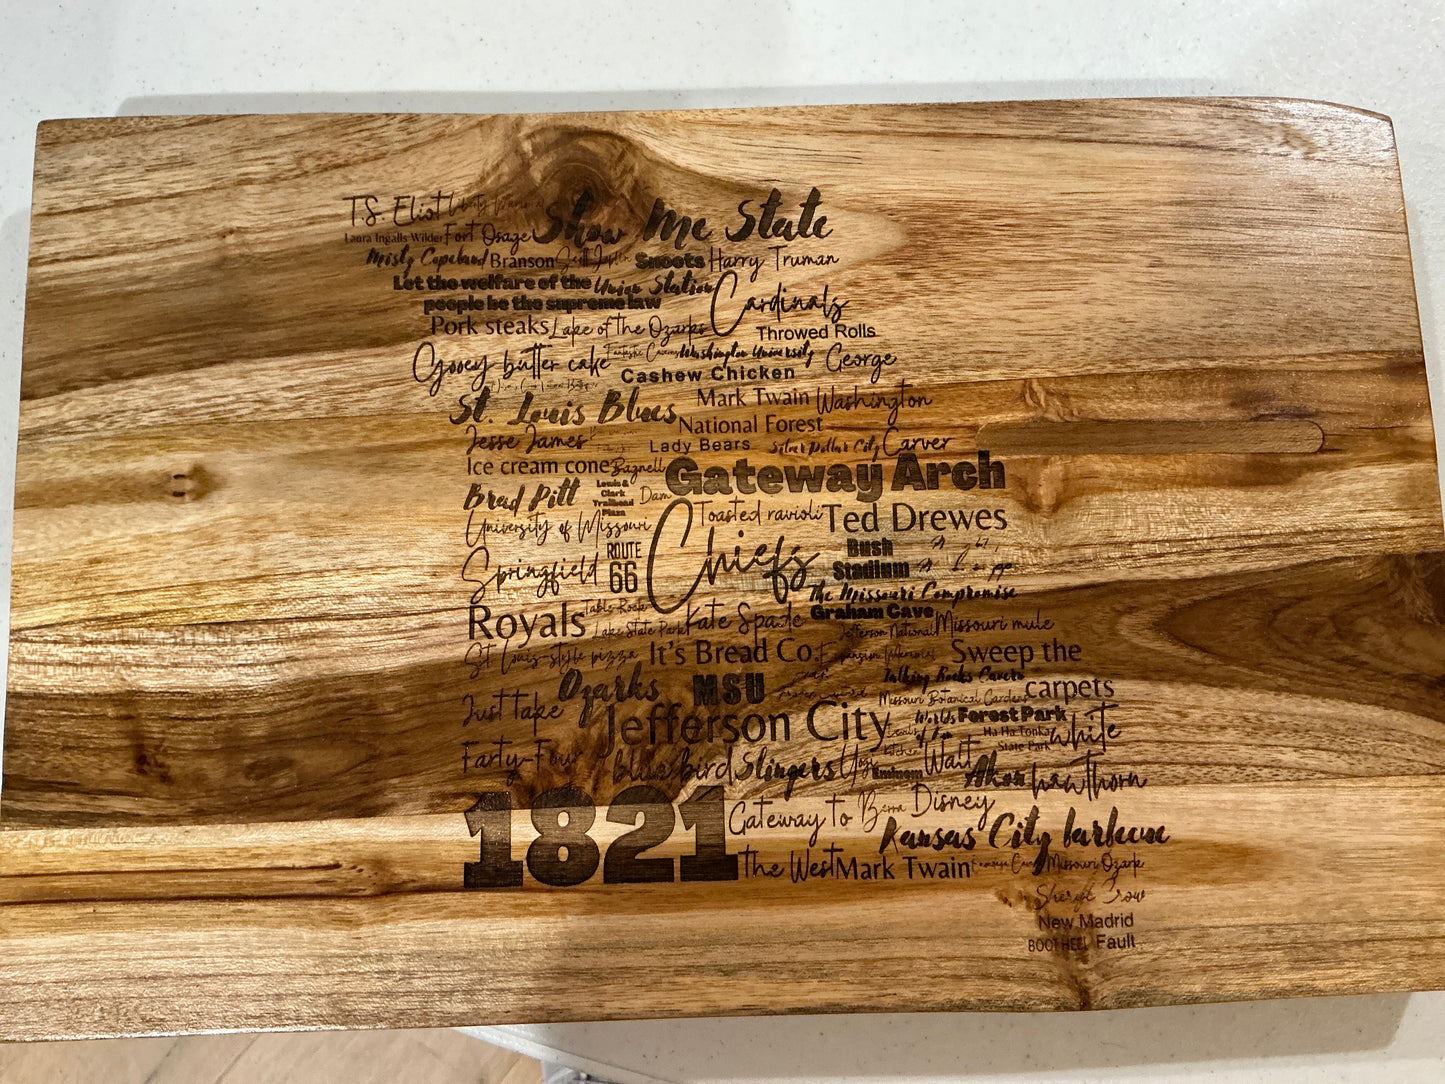 T.S. Eliot Liberty Memorial Show Me State
Laura Ingalls Wilder Fort Osage
Misty Copeland Branson Scott Joplin Snoots Harry Truman
Let the welfare of the Union Station Cardinals
people be the supreme law
Pork steaks Lake of the Ozarks Throwed Rolls
Gooey butter cake Fantastic Caverns Washington University George
Cashew Chicken
St. Louis Blues Mark Twain Washington
National Forest
Jesse James Lady Bears Silver Dollar City Carver
Ice cream cone Bagnell Gateway Arch
Brad Pitt Lewis & Dam
Clark
Trailhead
Plaza
University of Missouri Toasted ravioli Ted Drewes
Springfield ROUTE Chiefs Bush
66 Stadium
The Missouri Compromise
Royals Table Rock Kate Spade Graham Cave
Lake State Park Jefferson National Missouri mule
St. Louis-style pizza It's Bread Co. Expansion Memorial Sweep the
Talking Rocks Cavern
Just take Ozarks MSU Missouri Botanical Gardens carpets
Jefferson City Worlds Forest Park
Ha Ha Tonka white
State Park
Farty-Four blue bird Slingers Yogi kitchen Walt
Eminem Akon hawthorn
1821 Gateway to Berra Disney
Kansas City barbecue
the West Mark Twain Missouri Ozark
Sheryl Crow
New Madrid
BOOTHEEL Fault